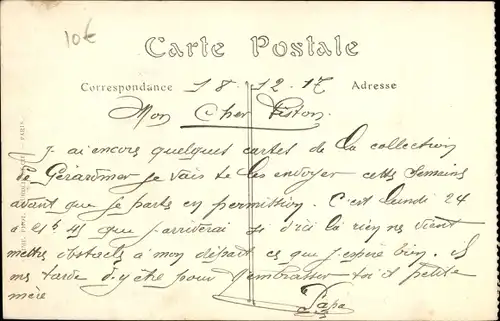 10€
Carte Postale
Correspondance 18.12.17 Adresse
Mon Cher Fiston.
j'ai encors quelques cartes de la collection
de Gérardmer je vais te les envoyer cette semaine
avant que je parte en permission. C'est lundi 24
à que j'arriverai si d'ici là rien ne vient
mettre obstacle à mon départ ce que j'espère bien. il
me tarde d'y être pour t'embrasser toi et petite
mère
Papa